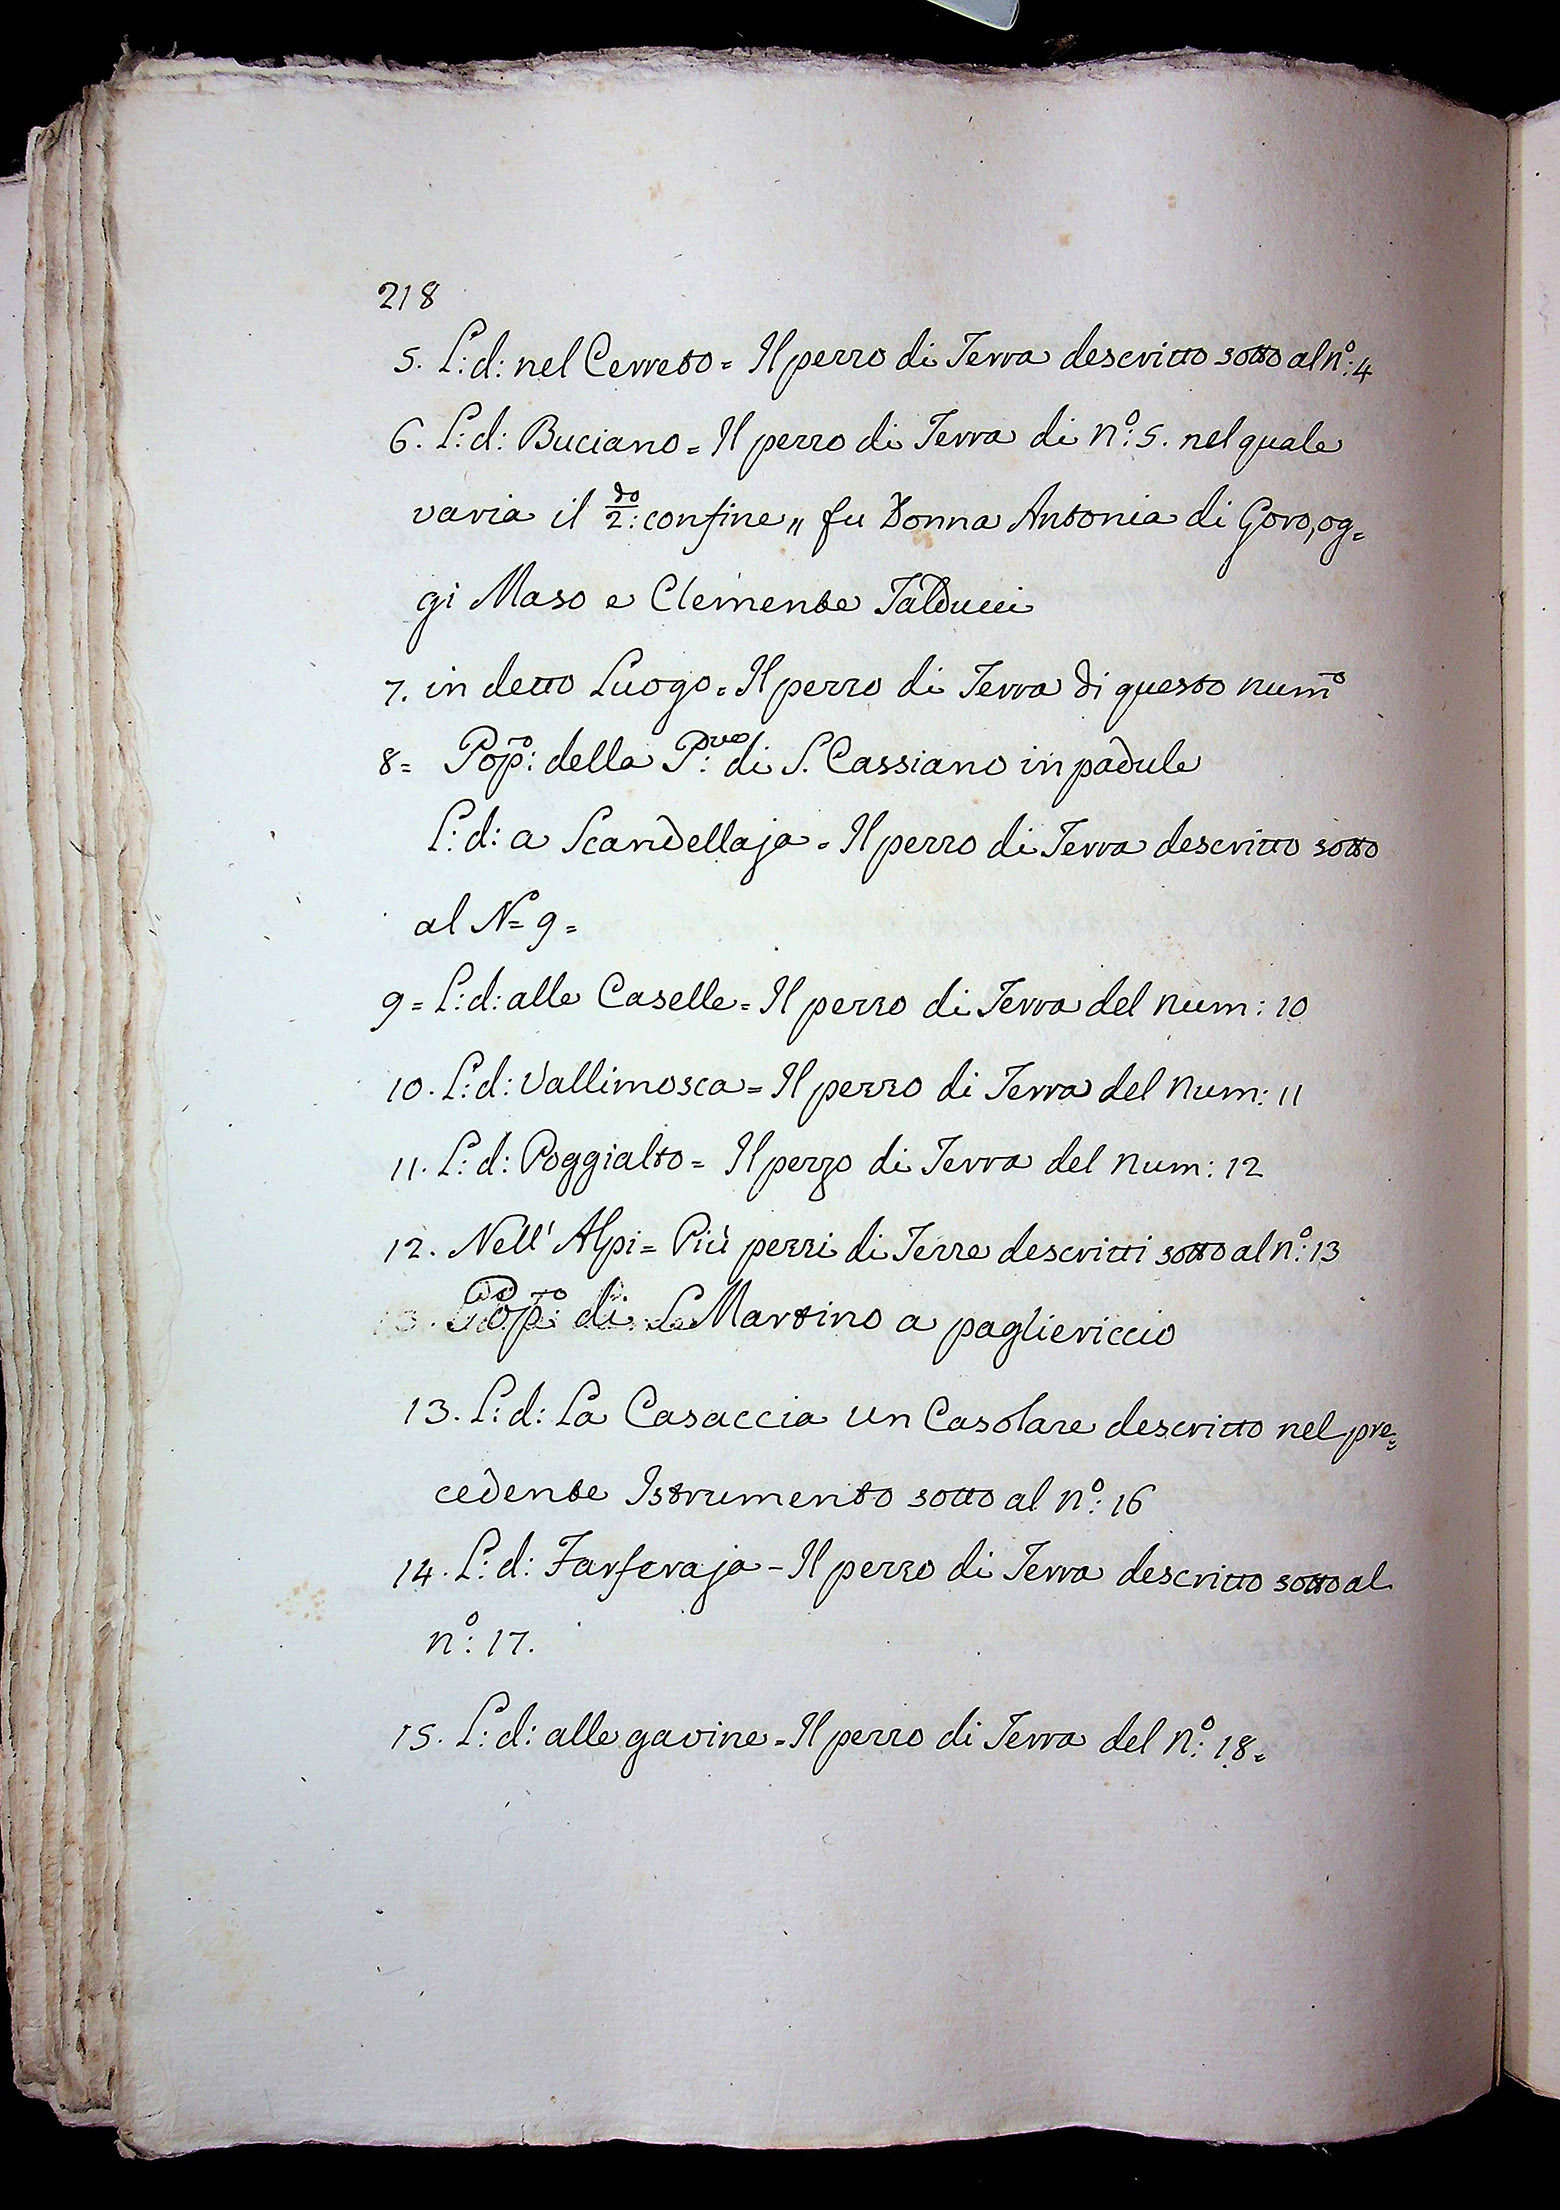 218
5. L: d: nel Cerreto = Il pezzo di Terra descritto sotto al n.º: 4
6. L: d: Buciano = Il pezzo di Terra di nº: 5. nel quale
varia il 2:do confine „ fu Donna Antonia di Goro, og=
gi Maso e Clemente Talducci
7. in detto Luogo = Il pezzo di Terra di questo num̅º
8= Pop̅:ro della P:ve di S. Cassiano in padule
L: d: a Scandellaja = Il pezzo di Terra descritto sotto
al Nº= 9=
9= L: d: alle Caselle = Il pezzo di Terra del num: 10
10. L: d: Vallimosca = Il pezzo di Terra del Num: 11
11. L: d: Poggialto = Il pezzo di Terra del num: 12
12. Nell' Alpi = Più pezzi di Terre descritti sotto al nº: 13
Pop:ro di S. Martino a pagliericcio
13. L: d: La Casaccia un Casolare descritto nel pre=
cedente Istrumento sotto al nº: 16
14. L: d: Farferaja - Il pezzo di Terra descritto sotto al
nº: 17.
15. L: d: alle gavine = Il pezzo di Terra del nº: 18=